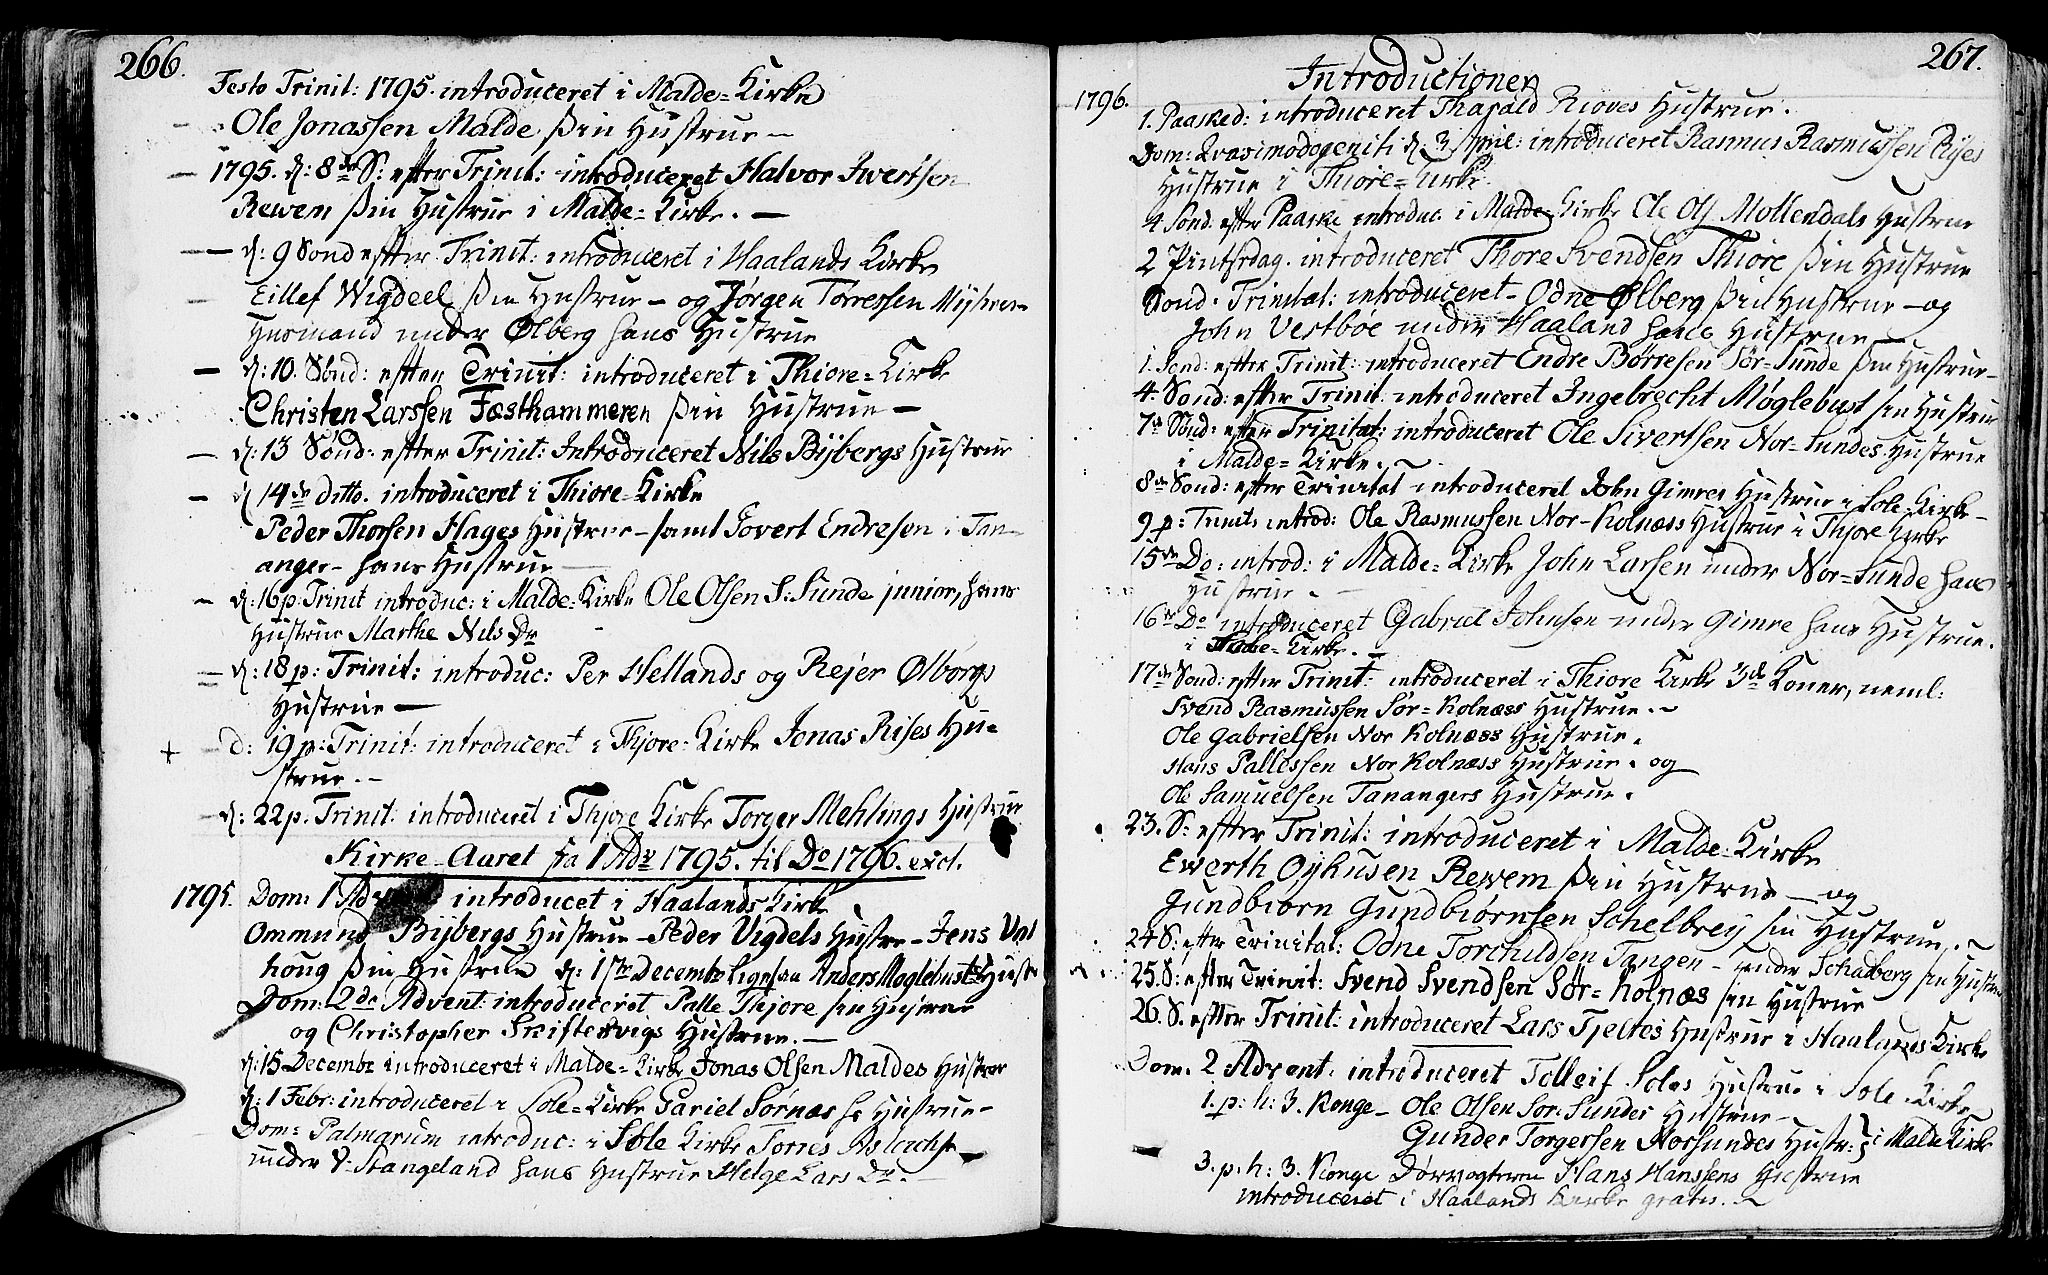 266.
Festo Trinit: 1795. introduceret i Malde=Kirke
Ole Jonassen Malde sin Hustrue –
1795. d: 8de S: efter Trinit: introduceret Halvor Iwertsen
Rewem sin Hustrue i Malde=Kirke. –
d: 9 Sond efter Trinit: introduceret i Haalands Kirke
Eillef Wigdeel sin Hustrue – og Jørgen Torressen
Huusmand under Ølberg hans Hustrue
d: 10. Sønd: efter Trinit: introduceret i Thiore=Kirke
Christen Larssen Fæsthammeren sin Hustrue –
d: 13 Sønd: efter Trinit: Introduceret Nils Bijbergs Hustrue
d 14de ditto. introduceret i Thiore=Kirke
Peder Thorsen Hages Hustrue – samt Govert Endresen i Tan-
anger – hans Hustrue –
d: 16 p: Trinit introduc: i Malde=Kirke Ole Olsen S: Sunde junior, hans
Hustrue Marthe Nils Dr
d: 18 p: Trinit: introduc: Per Hellands og Rejer Ølborgs
Hustrue –
d: 19 p: Trinit: introduceret i Thjore=Kirke Jonas Rises Hu=
strue. –
d: 22 p: Trinit: introduceret i Thjore Kirke Torger Mehlings Hustrue
Kirke-Aaret fra 1 Adv 1795. til Do 1796. excl.
1795. Dom: 1 Adv introducet i Haalands Kirke
Ommund Bijbergs Hustrue – Peder Vigdels Hustre – Jens
houg sin Hustrue d: 1ste Decembr ligesaa Anders Moglebusts Hustr
Dom: 2de Advent: introduceret Palle Thjore sin Hustrue
og Christopher Sniftesvigs Hustrue. –
d: 15 Decembr introduceret i Malde=Kirke Jonas Olsen Maldes Hustrue
d: 1 Febr: introduceret i Sole=Kirke Gabriel Sørnæs hs Hustrue –
Dom: Palmarum introduc: i Sole Kirke Torres Aslachs
under Y: Stangeland hans Hustrue Helge Lars Dr. –
267.
Introductioner
1796. 1. Paasked: introduceret Tharald Riøves Hustrue.
Dom: Qvasimodogeniti d: 3 April: introduceret Rasmus Rasmussen Rises
Hustrue i Thiore=Kirke.
4 Sond. efter Paaske introduc. i Malde Kirke Ole Ols Mollendals Hustrue
2 Pintsedag. introduceret Thore Svendsen Thiore sin Hustrue
Sond. Trinitat: introduceret – Odne Ølberg sin Hustrue – og
John Vestbøe under Haaland hans Hustrue –
1. Sond: efter Trinit: introduceret Endre Børresen Sør=Sunde sin Hustrue –
4. Sond: efter Trinit. introduceret Ingebrecht Møglebust sin Hustrue
7de Sønd: efter Trinitat: introduceret Ole Sivertsen Nor=Sundes Hustrue
i Malde=Kirke. –
8de Sond: efter Trinitat introduceret John Gimres Hustrue i Sole Kirke –
9 p: Trinit: introd: Ole Rasmussen Nor-Kolnæss Hustrue i Thjore Kirke
15de Do: introd: i Malde=Kirke John Larsen under Nor=Sunde hans
Hustrue. –
16de Do introduceret Gabriel Johnsen under Gimre hans Hustrue.
i Kirke. –
17de Sond: efter Trinit: introduceret i Thiore Kirke 3de Koner, neml:
Svend Rasmussen Sør=Kolnæss Hustrue. –
Ole Gabrielsen Nor Kolnæss Hustrue.
Hans Pallessen Nor Kolnæss Hustrue. og
Ole Samuelsen Tanangers Hustrue.
23. S: efter Trinit: introduceret i Malde=Kirke
Ewerth Oijhusen Rewem sin Hustrue – og
Gundbiørn Gundbiørnsen Schelbrey sin Hustrue. –
24 S: efter Trinitat: Odne Torchildsen Tangen – under Schadberg sin Hustrue
25. S: efter Trinit: Svend Svendsen Sør=Kolnæs sin Hustrue
26. S. efter Trinit: introduceret Lars Tjeltes Hustrue i Haalands Kirke
Dom. 2 Advent. introduceret Tolleif Soles Hustrue i Sole Kirke
1. p: h: 3. Konge – Ole Olsen Sør-Sundes Hustrue –
Gunder Torgersen Norsundes Hustr: } i Malde Kirke
3. p. h: 3. Konge Dørvogteren Hans Hanssens Hustrue
introduceret i Haalands Kirke gratis. –